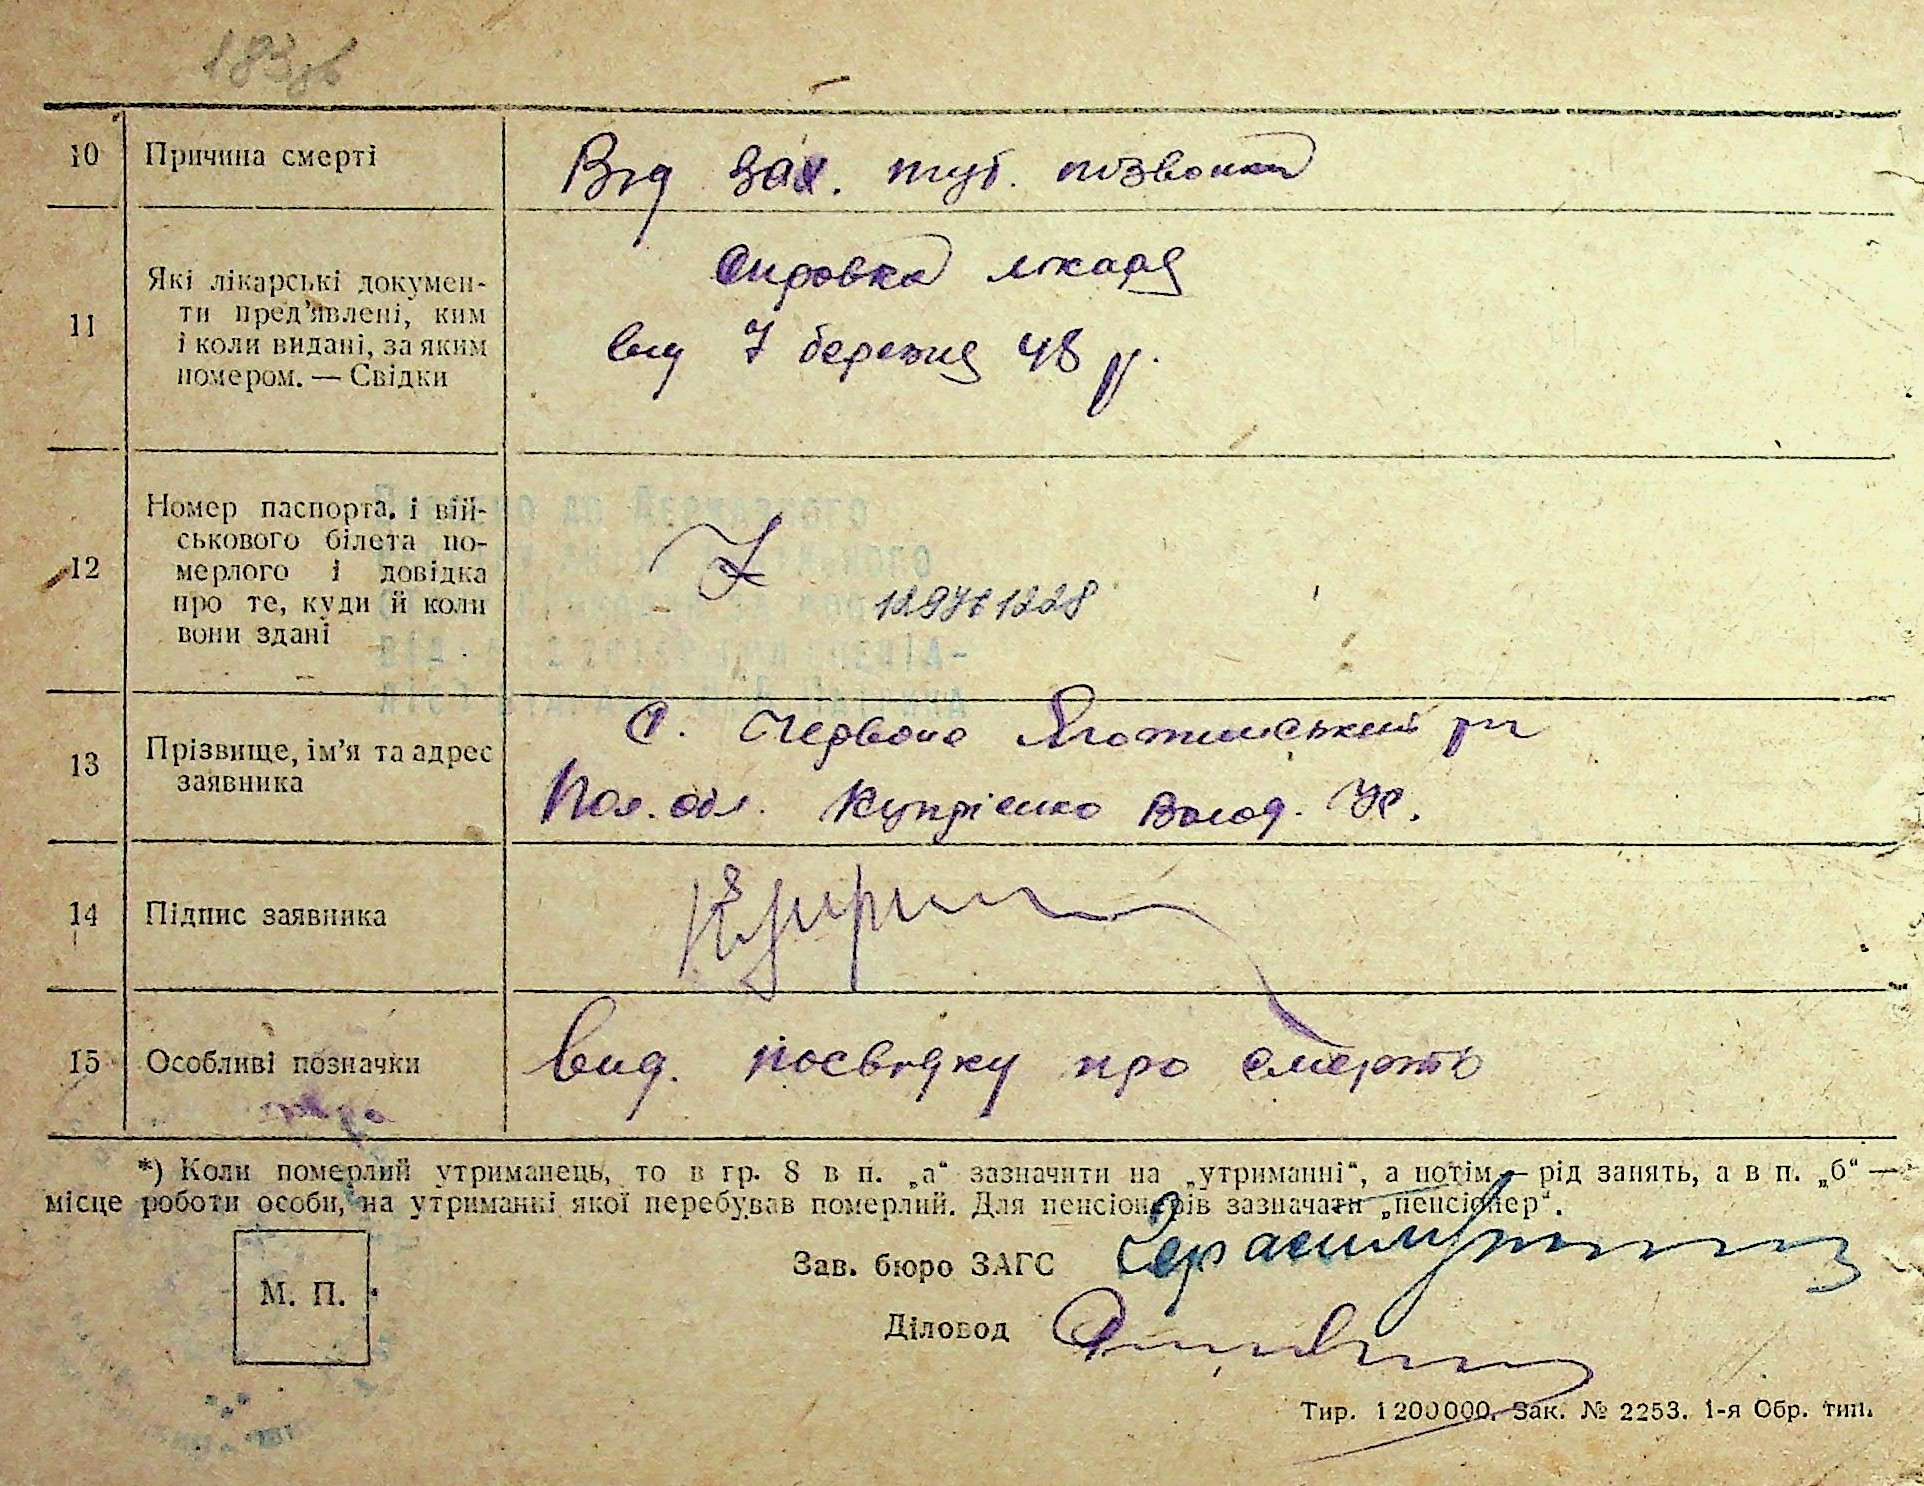 183зв
10 Причина смерті Від зах. туб. позвонка
11 Які лікарські докумен-
ти пред'явлені, ким
і коли видані, за яким
номером. — Свідки
Справка лікаря
від 7 березня 48 р.
12 Номер паспорта і вій-
ськового білета по-
мерлого і довідка
про те, куди й коли
вони здані
13 Прізвище, ім'я та адрес
заявника
с. Червоне Яготинський рн
Пол. обл. Купрієнко Волод. Ив.
14 Підпис заявника
15 Особливі позначки Вид. посвідку про смерть
*) Коли померлий утриманець, то в гр. 8 в п. „а“ зазначити на „утриманні“, а потім — рід занять, а в п. „б“ —
місце роботи особи, на утриманні якої перебував померлий. Для пенсіонерів зазначати „пенсіонер“.
М. П.
Зав. бюро ЗАГС
Діловод
Тир. 1200000. Зак. № 2253. 1-я Обр. тип.